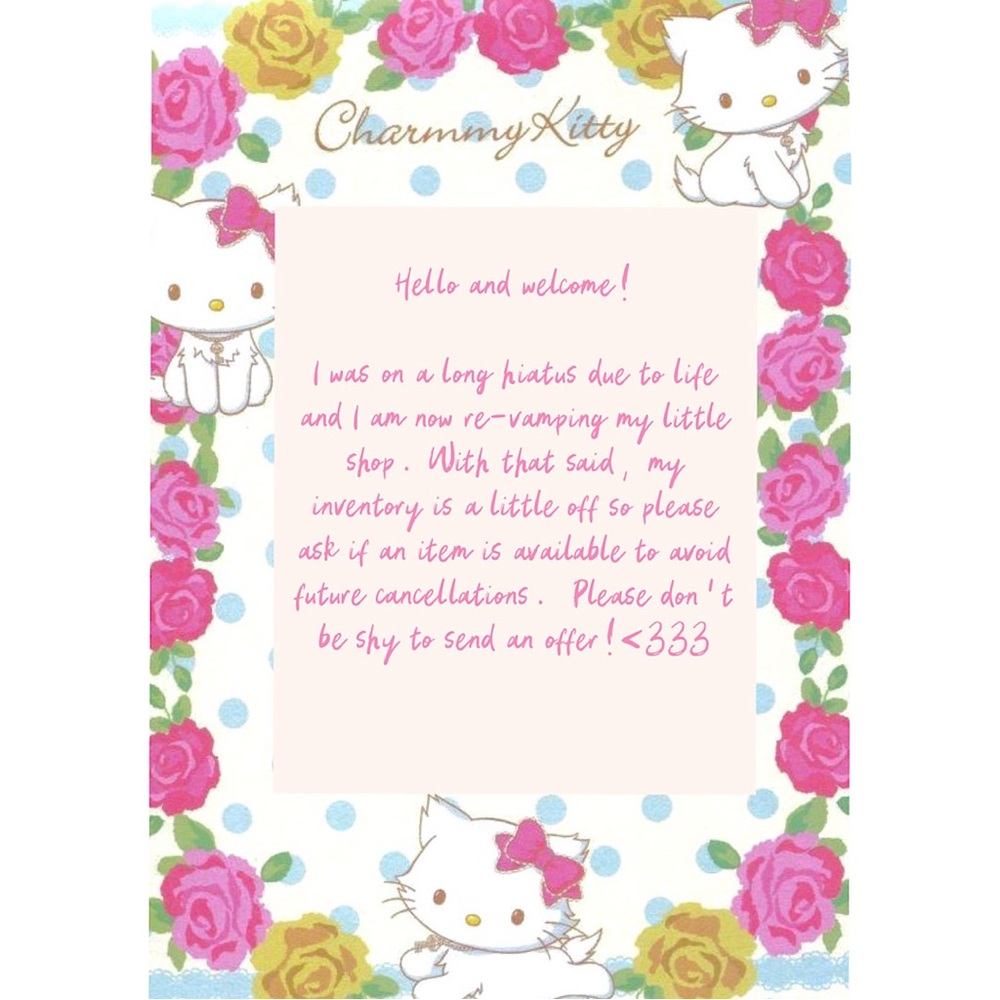 Charmmy Kitty
Hello and welcome!
I was on a long hiatus due to life
and I am now re-vamping my little
shop. With that said, my
inventory is a little off so please
ask if an item is available to avoid
future cancellations. Please don't
be shy to send an offer! <333